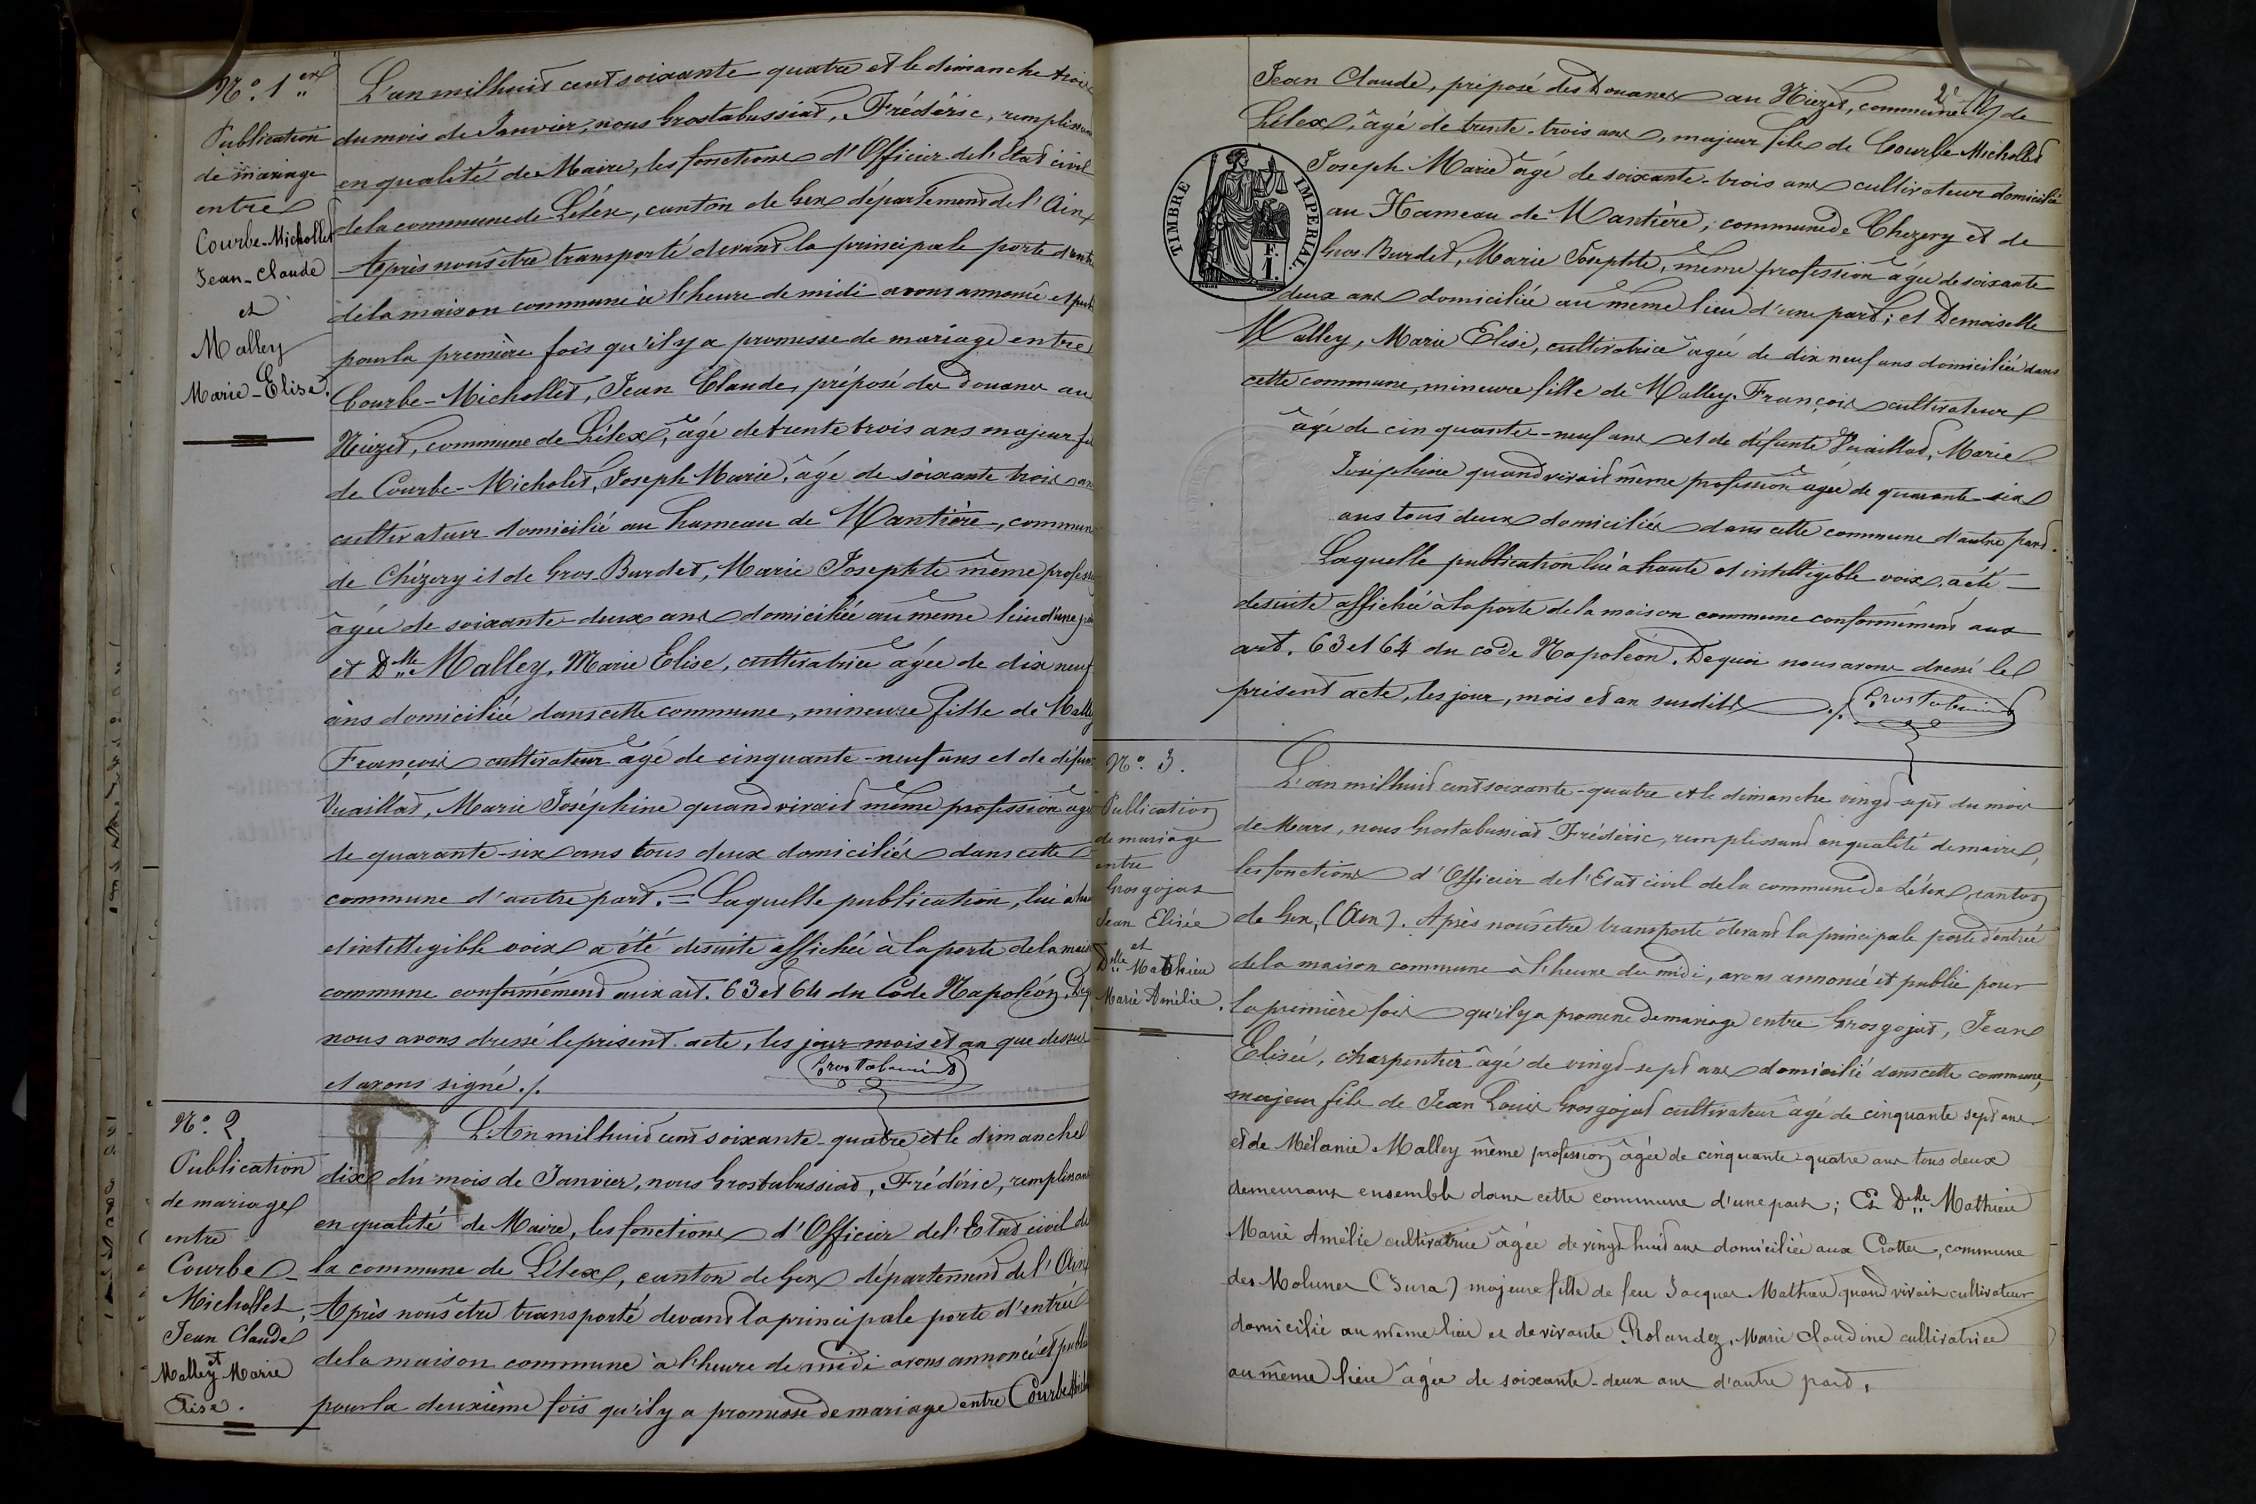 N.º 1.er
Publication
de mariage
entre
Courbe-Michollet
Jean-Claude
et
Malley
Marie-Elise.
L'an mil huit cent soixante quatre et le dimanche trois
du mois de Janvier, nous Grostabussiat, Frédéric, remplissant
en qualité de Maire, les fonctions d'Officier de l'Etat civil
de la commune de Lélex, canton de Gex département de l'Ain,
Après nous être transporté devant la principale porte d'entr
de la maison commune à l'heure de midi avons annoncé et publ
pour la première fois qu'il y a promesse de mariage entre
Courbe-Michollet, Jean Claude, préposé des Douanes au
Niezet, commune de Lélex, âgé de trente trois ans majeur fil
de Courbe-Micholet, Joseph Marie, âgé de soixante trois ans
cultivateur domicilié au hameau de Mantière, commune
de Chézery et de Gros-Burdet, Marie Josephte même professi
âgée de soixante-deux ans domiciliée au même lieu d'une p
et Dlle Malley, Marie Elise, cultivatrice âgée de dix neuf
ans domiciliée dans cette commune, mineure fille de Malley
François cultivateur âgé de cinquante-neuf ans et de défun
Vuaillat, Marie Joséphine quand vivait même profession âgé
de quarante-six ans tous deux domiciliés dans cette
commune d'autre part. = Laquelle publication, lue à hau
et intelligible voix a été desuite affichée à la porte de la mais
commune conformément aux art. 63 et 64 du Code Napoléon. Deq
nous avons dressé le présent acte, les jour mois et an que dessus
et avons signé ./.
Grostabussiat
N.º 2.
Publication
de mariage
entre
Courbe-
Michollet,
Jean Claude
et
Malley Marie
Elise.
L'An mil huit cent soixante-quatre et le dimanche
dix du mois de Janvier, nous Grostabussiat, Frédéric, remplissant
en qualité de Maire, les fonctions d'Officier de l'Etat civil de
la commune de Lélex, canton de Gex département de l'Ain
Après nous être transporté devant la principale porte d'entrée
de la maison commune à l'heure de midi avons annoncé et publié
pour la deuxième fois qu'il y a promesse de mariage entre Courbe Michol
2e
Jean Claude, préposé des Douanes au Niezet, commune de
Lélex, âgé de trente-trois ans, majeur fils de Courbe Michollet
Joseph Marie âgé de soixante-trois ans cultivateur domicilié
au Hameau de Mantière, commune de Chezery et de
Gros-Burdet, Marie Josephte, même profession âgée de soixante
deux ans domiciliée au même lieu d'une part; et Demoiselle
Malley, Marie Elise, cultivatrice âgée de dix neuf ans domiciliée dans
cette commune, mineure fille de Malley François cultivateur
âgé de cinquante-neuf ans et de défunte Vuaillat, Marie
Joséphine quand vivait même profession âgée de quarante-six
ans tous deux domiciliés dans cette commune d'autre part.
Laquelle publication lue à haute et intelligible voix, a été
desuite affichée à la porte de la maison commune conformément aux
art. 63 et 64 du code Napoléon. Dequoi nous avons dressé le
présent acte, les jour, mois et an susdits ./. Grostabussiat
TIMBRE IMPERIAL
F.
1.
N.º 3.
Publication
de mariage
entre
Grosgojat
Jean Elisée
et
Delle Mathieu
Marie Amélie.
L'an mil huit cent soixante-quatre et le dimanche vingt-sept du mois
de Mars, nous Grostabussiat Frédéric, remplissant en qualité de maire,
les fonctions d'Officier de l'Etat civil de la commune de Lélex, canton
de Gex, (Ain). Après nous être transporté devant la principale porte d'entrée
de la maison commune à l'heure du midi, avons annoncé et publié pour
la première fois qu'il y a promesse de mariage entre Grosgojat, Jean
Elisée, charpentier âgé de vingt-sept ans domicilié dans cette commune,
majeur fils de Jean Louis Grosgojat cultivateur âgé de cinquante sept ans
et de Mélanie Malley même profession âgée de cinquante-quatre ans tous deux
demeurant ensemble dans cette commune d'une part; Et Delle Mathieu
Marie Amélie cultivatrice âgée de vingt huit ans domiciliée aux Crottes, commune
des Molunes (Jura) majeure fille de feu Jacques Mathieu quand vivait cultivateur
domicilié au même lieu et de vivante Rolandez, Marie Claudine cultivatrice
au même lieu âgée de soixante-deux ans d'autre part.